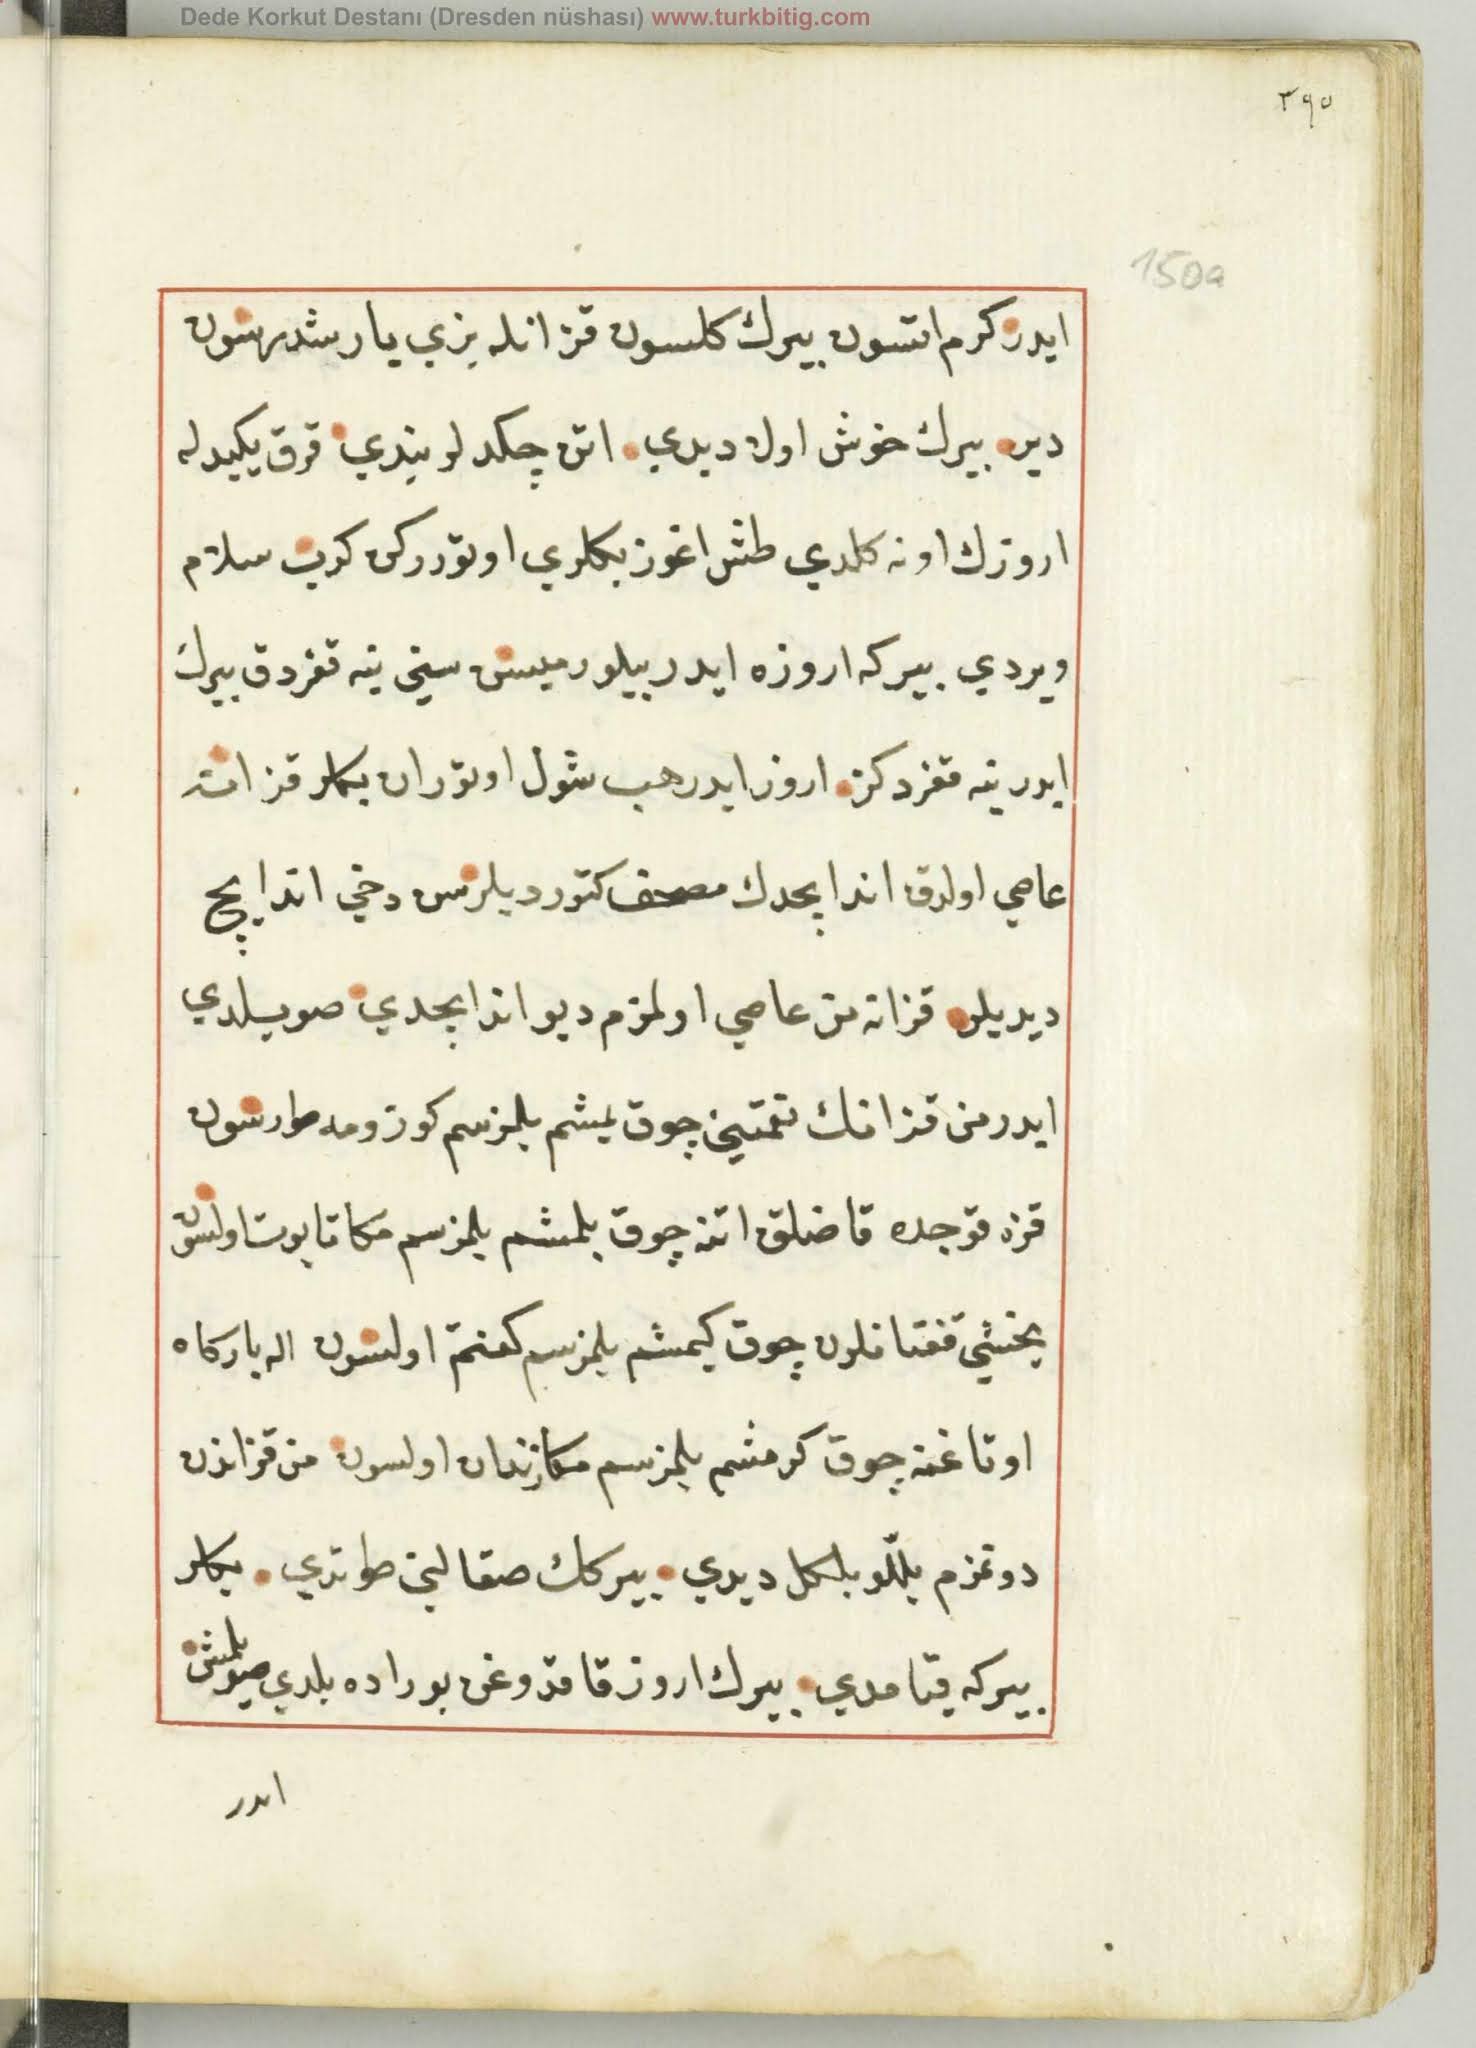 Dede Korkut Destanı (Dresden nüshası) www.turkbitig.com
٢٩٥
150a
ايدر كرم اتسون بيرك كلسون قزانله بزي يارشدرسون
دير بيرك خوش اوله ديدي اتن چكدلر بندي قرق يكيدله
اروزك اونه كلدي طش اغوز بكلري اوتوررکن كرب سلام
ويردي بيركه اروزه ايدر بيلورميسن سيني ينه قغردق بيرك
ايدر ينه قغردكز اروز ايدر هب شول اوتوران بكلر قزانه
عاصي اولدق اند ايچدك مصحف كتورديلر سن دخي اند ايچ
ديديلر قزانه من عاصي اولمزم ديو اند ايچدي صويلدي
ايدر من قزانك نعمتين چوق يمشم بلمزسم كوزومه طورسون
قره قوجده قاضلق اتنه چوق بلمشم بلمزسم مكا تابوت اولسون
يخشي قفتانلرن چوق كيمشم بلمزسم كفنم اولسون اله باركاه
اوتاغنه چوق كرمشم بلمزسم مكا زندان اولسون من قزاندن
دونمزم بللو بلكل ديدي بيركك صقالين طوتدي بكلر
بيركه قيامدي بيرك اروز قاقدوغن بوراده بلدي صويلمش
ايدر